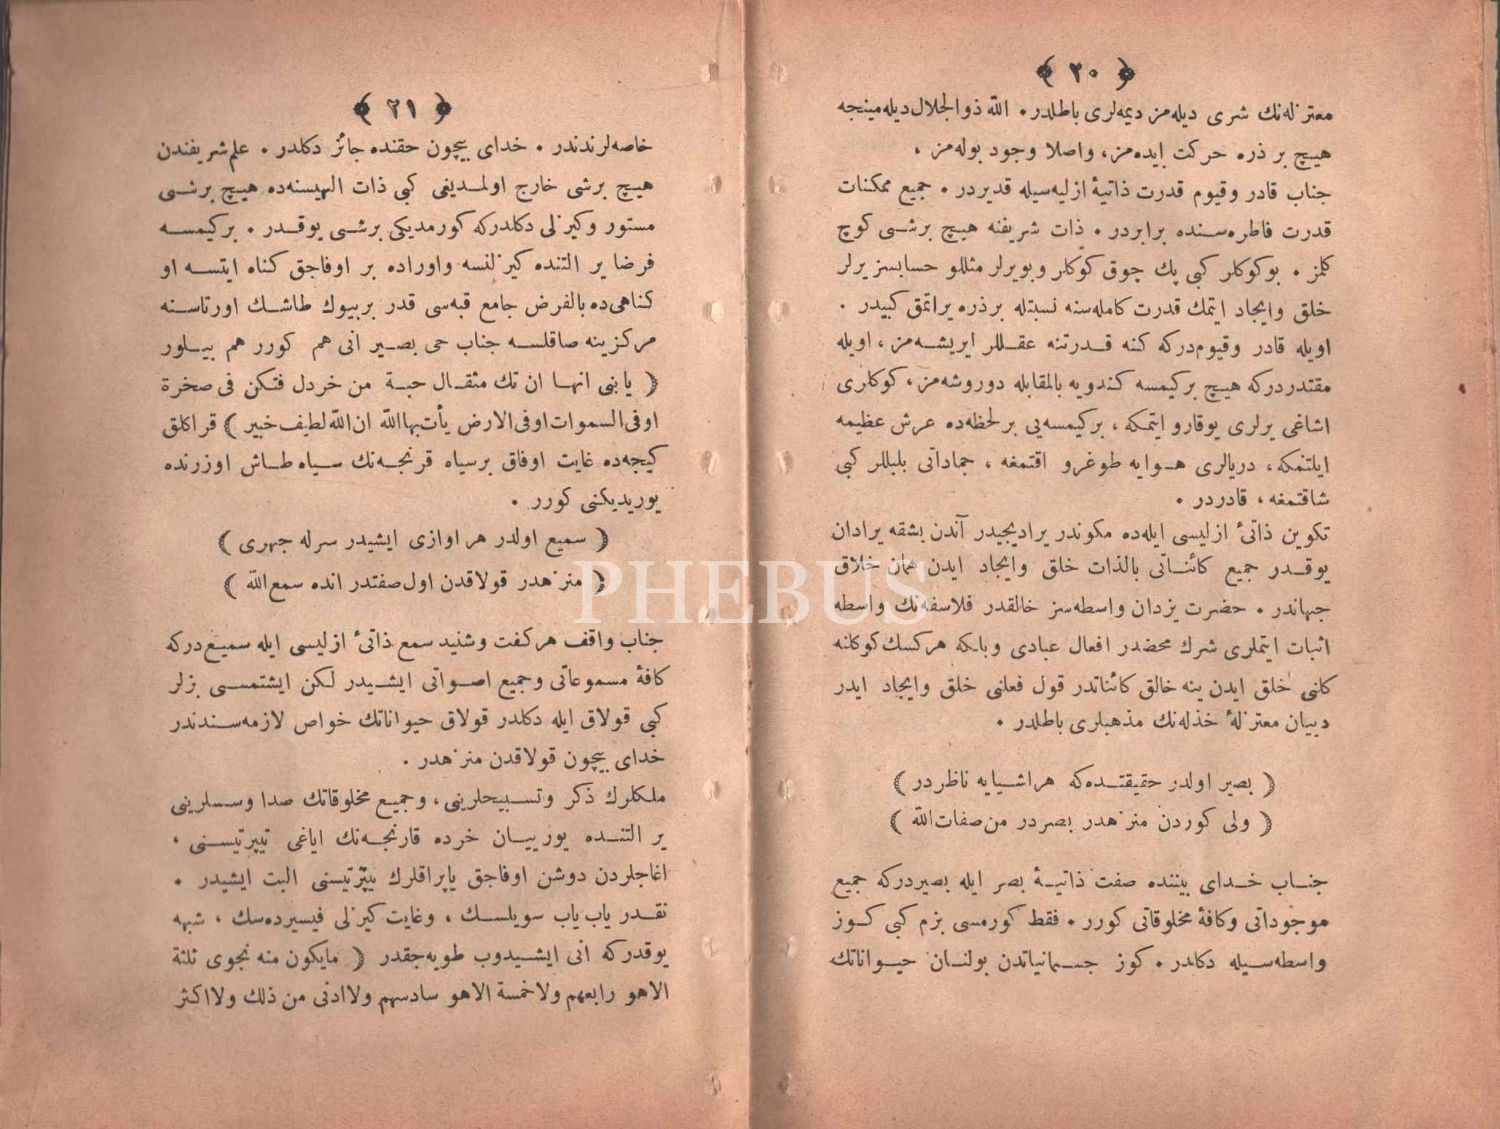 ﴿ ٢٠ ﴾
معتزله‌نك شرى ديله‌مز ديمه‌لرى باطلدر ٠ الله ذو الجلال ديله‌مينجه
هيچ بر ذره حركت ايده‌مز، واصلا وجود بوله‌مز ،
جناب قادر وقيوم قدرت ذاتيهٔ ازليه‌سيله قديردر ٠ جميع ممكنات
قدرت فاطره‌سنده برابردر ٠ ذات شريفنه هيچ برشى كوچ
كلمز ٠ بوكوكلر كبى پك چوق كوكلر وبويرلر مثللو حسابسز يرلر
خلق وايجاد ايتمك قدرت كامله‌سنه نسبتله برذره يراتمق كبيدر ٠
اويله قادر وقيومدركه كنه قدرتنه عقللر ايريشه‌مز ، اويله
مقتدردركه هيچ بركيمسه كندويه بالمقابله دوروشه‌مز ، كوكلرى
اشاغى يرلرى يوقارو ايتمكه ، بركيمسه‌يى برلحظه‌ده عرش عظيمه
ايلتمكه، دريالرى هوايه طوغرو اقتمغه ، جماداتى بلبللر كبى
شاقتمغه ، قادردر ٠
تكوين ذاتئ ازليسى ايله‌ده مكوندر يراديجيدر آندن بشقه يرادان
يوقدر جميع كائناتى بالذات خلق وايجاد ايدن همان خلاق
جهاندر ٠ حضرت يزدان واسطه‌سز خالقدر فلاسفه‌نك واسطه
اثبات ايتملرى شرك محضدر افعال عبادى وبلكه هركسك كوكلنه
كلنى خلق ايدن ينه خالق كائناتدر قول فعلنى خلق وايجاد ايدر
ديیان معتزلهٔ خذله‌نك مذهبلرى باطلدر ٠
﴿ بصير اولدر حقيقتده‌كه هراشيايه ناظردر ﴾
﴿ ولى كوردن منزهدر بصردر من صفات الله ﴾
جناب خداى بيننده صفت ذاتيهٔ بصر ايله بصيردركه جميع
موجوداتى وكافهٔ مخلوقاتى كورر ٠ فقط كورمسى بزم كبى كوز
واسطه‌سيله دكلدر ٠ كوز جسمانياتدن بولنان حيواناتك
﴿ ٢١ ﴾
خاصه‌لرندندر ٠ خداى بيچون حقنده جائز دكلدر ٠ علم شريفندن
هيچ برشى خارج اولمديغى كبى ذات الهيسنه‌ده هيچ برشى
مستور وكيزلى دكلدركه كورمديكى برشى يوقدر ٠ بركيمسه
فرضا ير التنده كيزلنسه واوراده بر اوفاجق كناه ايتسه او
كناهى‌ده بالفرض جامع قبه‌سى قدر بربيوك طاشك اورتاسنه
مركزينه صاقلسه جناب حى بصير انى هم كورر هم بيلور
﴿ يا بنى انها ان تك مثقال حبة من خردل فتكن فى صخرة
اوفى السموات اوفى الارض يأت بهاالله ان الله لطيف خبير ﴾ قراكلق
كيجه‌ده غايت اوفاق برسياه قرنجه‌نك سياه طاش اوزرنده
يوريديكنى كورر ٠
﴿ سميع اولدر هر اوازى ايشيدر سرله جهرى ﴾
﴿ منزهدر قولاقدن اول صفتدر انده سمع الله ﴾
جناب واقف هركفت وشنيد سمع ذاتئ ازليسى ايله سميعدركه
كافهٔ مسموعاتى وجميع اصواتى ايشيدر لكن ايشتمسى بزلر
كبى قولاق ايله دكلدر قولاق حيواناتك خواص لازمه‌سندندر
خداى بيچون قولاقدن منزهدر ٠
ملكلرك ذكر وتسبيحلرينى، وجميع مخلوقاتك صدا وسسلرينى
ير التنده يوريیان خرده قارنجه‌نك اياغى تيپرتيسنى ،
اغاجلردن دوشن اوفاجق ياپراقلرك تيپرتيسنى البت ايشيدر ٠
نقدر ياب ياب سويلسك ، وغايت كيزلى فيسيرده‌سك ، شبهه
يوقدركه انى ايشيدوب طويه‌جقدر ﴿ مايكون منه نجوى ثلثة
الاهو رابعهم ولاخمسة الاهو سادسهم ولاادنى من ذلك ولااكثر
PHEBUS